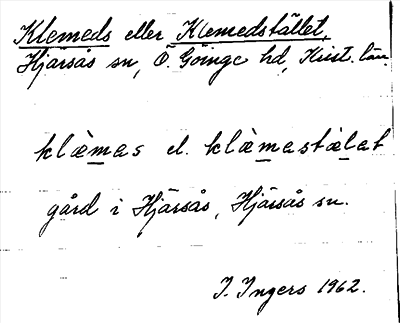 Klemeds eller Klemedstället,
Hjärsås sn, Ö. Göinge hd, Krist. län.
klèmas el. klèmastèlat
gård i Hjärsås, Hjärsås sn.
I. Ingers 1962.